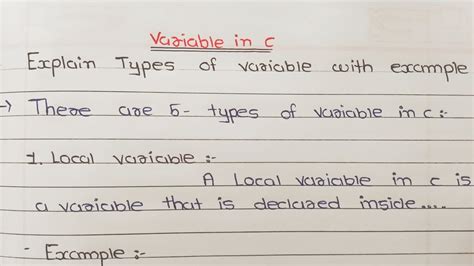 Variable in c
Explain Types of variable with example
→ There are 5- types of variable in c:-
1. Local variable :-
A Local variable in c is
a variable that is declared inside....
- Example :-